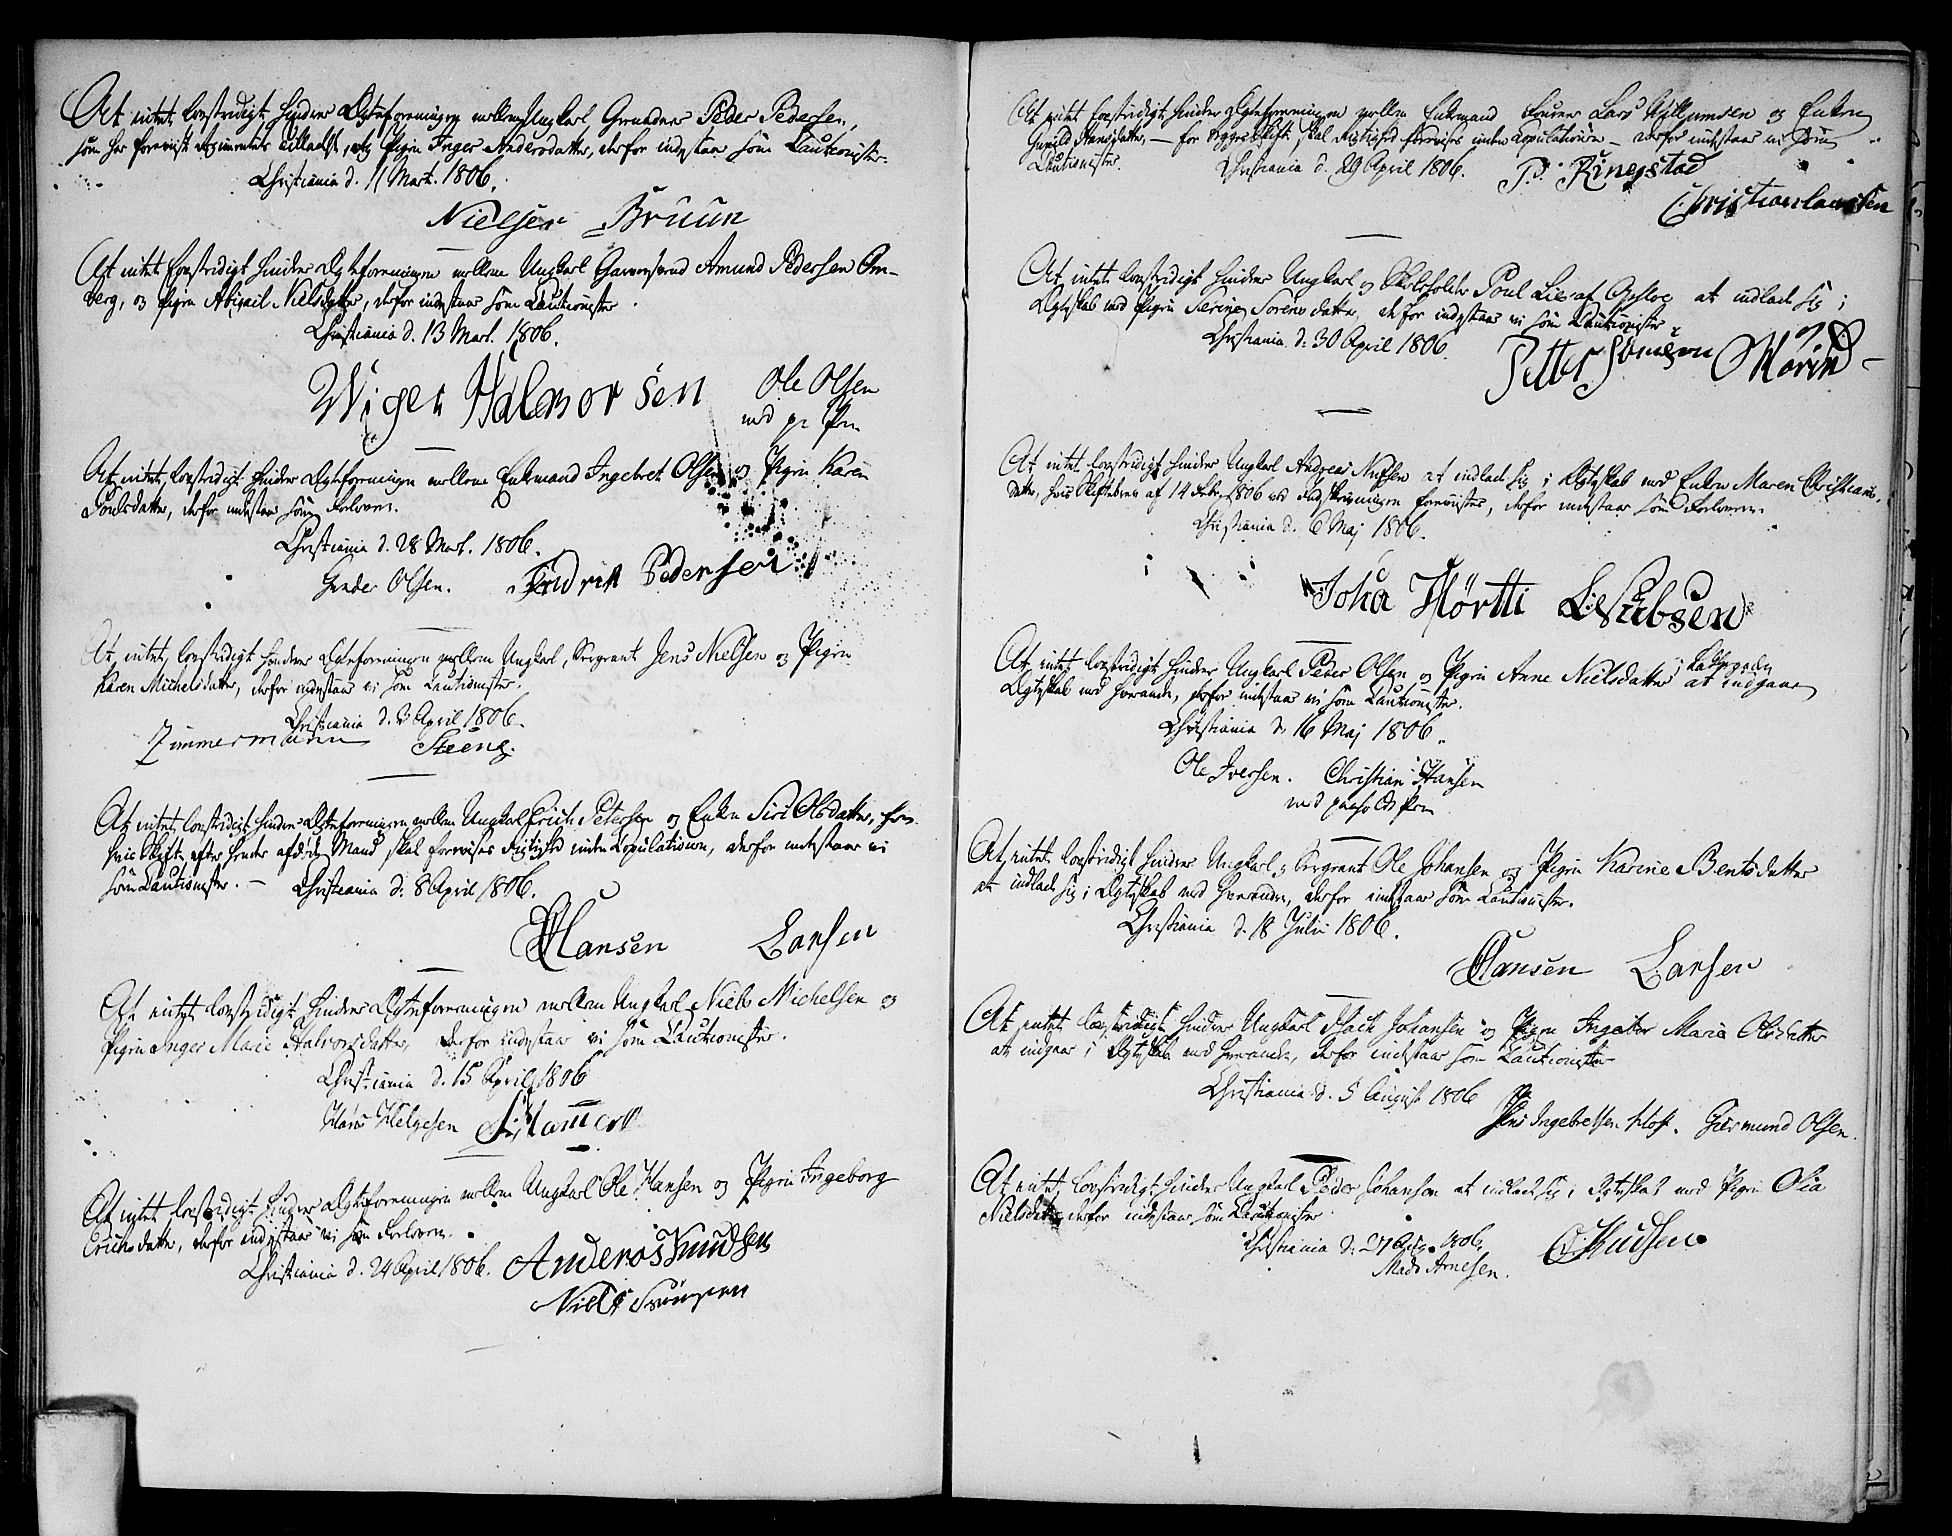 At intet lovstridigt hindrer Ægteforeningen mellem Ungkarl Grenadeer Peder Pedersen,
som har foreviist Regimentets Tilladelse, og Pigen Inger Andersdatter, derfor indestaar som Cautionister.
Christiania d. 11 Mart. 1806.
Nielsen Bruun
At intet lovstridigt hindrer Ægteforeningen mellem Ungkarl Garversvend Amund Pedersen Om-
berg, og Pigen Abigail Nielsdatter, derfor indestaar som Cautionister
Christiania d. 13 Mart. 1806.
Wiger Halvorsen Ole Olsen
med p. Pen
At intet lovstridigt hindrer Ægteforeningen mellem Enkemand Ingebret Olsen og Pigen Karen
Poulsdatter, derfor indestaar som Forlovere.
Christiania d. 28 Mart. 1806.
Gunder Olsen. Fridrik Pedersen
At intet lovstridigt hindrer Ægteforeningen mellem Ungkarl, Sergeant Jens Nielsen og Pigen
Karen Michelsdatter, derfor indestaar vi som Cautionister.
Christiania d. 8 April 1806.
Zimmermann Steeng.
At intet lovstridigt hindrer Ægteforeningen mellem Ungkarl Erich Petersen og Enken Siri Olsdatter, for
hvis Skifte efter hendes afdøde Mand skal forevises Rigtighed inden Copulationen, derfor indestaar vi
som Cautionister. — Christiania d. 8 April 1806.
Hansen Larsen
At intet lovstridigt hindrer Ægteforeningen mellem Ungkarl Niels Michelsen og
Pigen Inger Marie Halvorsdatter, derfor indestaar vi som Cautionister.
Christiania d. 15 April 1806
Hans Helgesen
At intet lovstridigt hindrer Ægteforeningen mellem Ungkarl Ole Hansen og Pigen Ingeborg
Erichsdatter, derfor indestaar vi som Forlovere.
Christiania d. 24 April 1806. Anders Knudsen
Niels
At intet lovstridigt hindrer Ægteforeningen mellem Enkemand Lars og Enken
Gunild — for Skifte skal Rigtighed forevises inden Copulationen — derfor indestaar vi som
Cautionister. Christiania d. 29 April 1806. P. Ringstad
Christian Clausen
At intet lovstridigt hindrer Ungkarl og Skoleholder Poul Lie af Opsloe at indlade sig i
Ægteskab med Pigen Serine Sørensdatter, derfor indestaar vi som Cautionister
Christiania d. 30 April 1806.
Petter
At intet lovstridigt hindrer Ungkarl Andreas Nielsen at indlade sig i Ægteskab med Enken Maren Christians-
datter, hvis Skiftebrev af 14 Febr. 1806 ved Indskrivningen forevistes, derfor indestaar som Forlovere.
Christiania d. 6 Maj 1806.
Joha Hørtti
At intet lovstridigt hindrer Ungkarl Peder Olsen og Pigen Anne Nielsdatter at indgaae
Ægteskab med hverandre, derfor indestaar vi som Cautionister.
Christiania d. 16 Maj 1806.
Ole Iversen. Christian Hansen
med paaholden Pen
At intet lovstridigt hindrer Ungkarl og Sergeant Ole Johansen og Pigen Karine Bentsdatter
at indlade sig i Ægteskab med hverandre, derfor indestaar som Cautionister.
Christiania d. 18 Julii 1806.
Hansen Larsen
At intet lovstridigt hindrer Ungkarl Johansen og Pigen Ingebor Maria Olsdatter
at indgaae i Ægteskab med hverandre, derfor indestaar som Cautionister
Christiania d. 5 August 1806
Jens Ingebretsen Gudmund Olsen.
At intet lovstridigt hindrer Ungkarl Peder Johansen at indlade sig i Ægteskab med Pigen Olia
Nielsdatter, derfor indestaar som Cautionister
Christiania d. 27 1806.
Mads Arnesen.